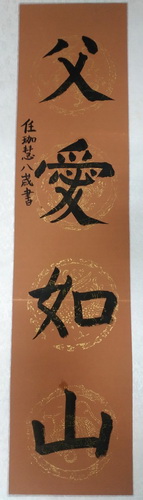 父愛如山
任珈慧八歲書